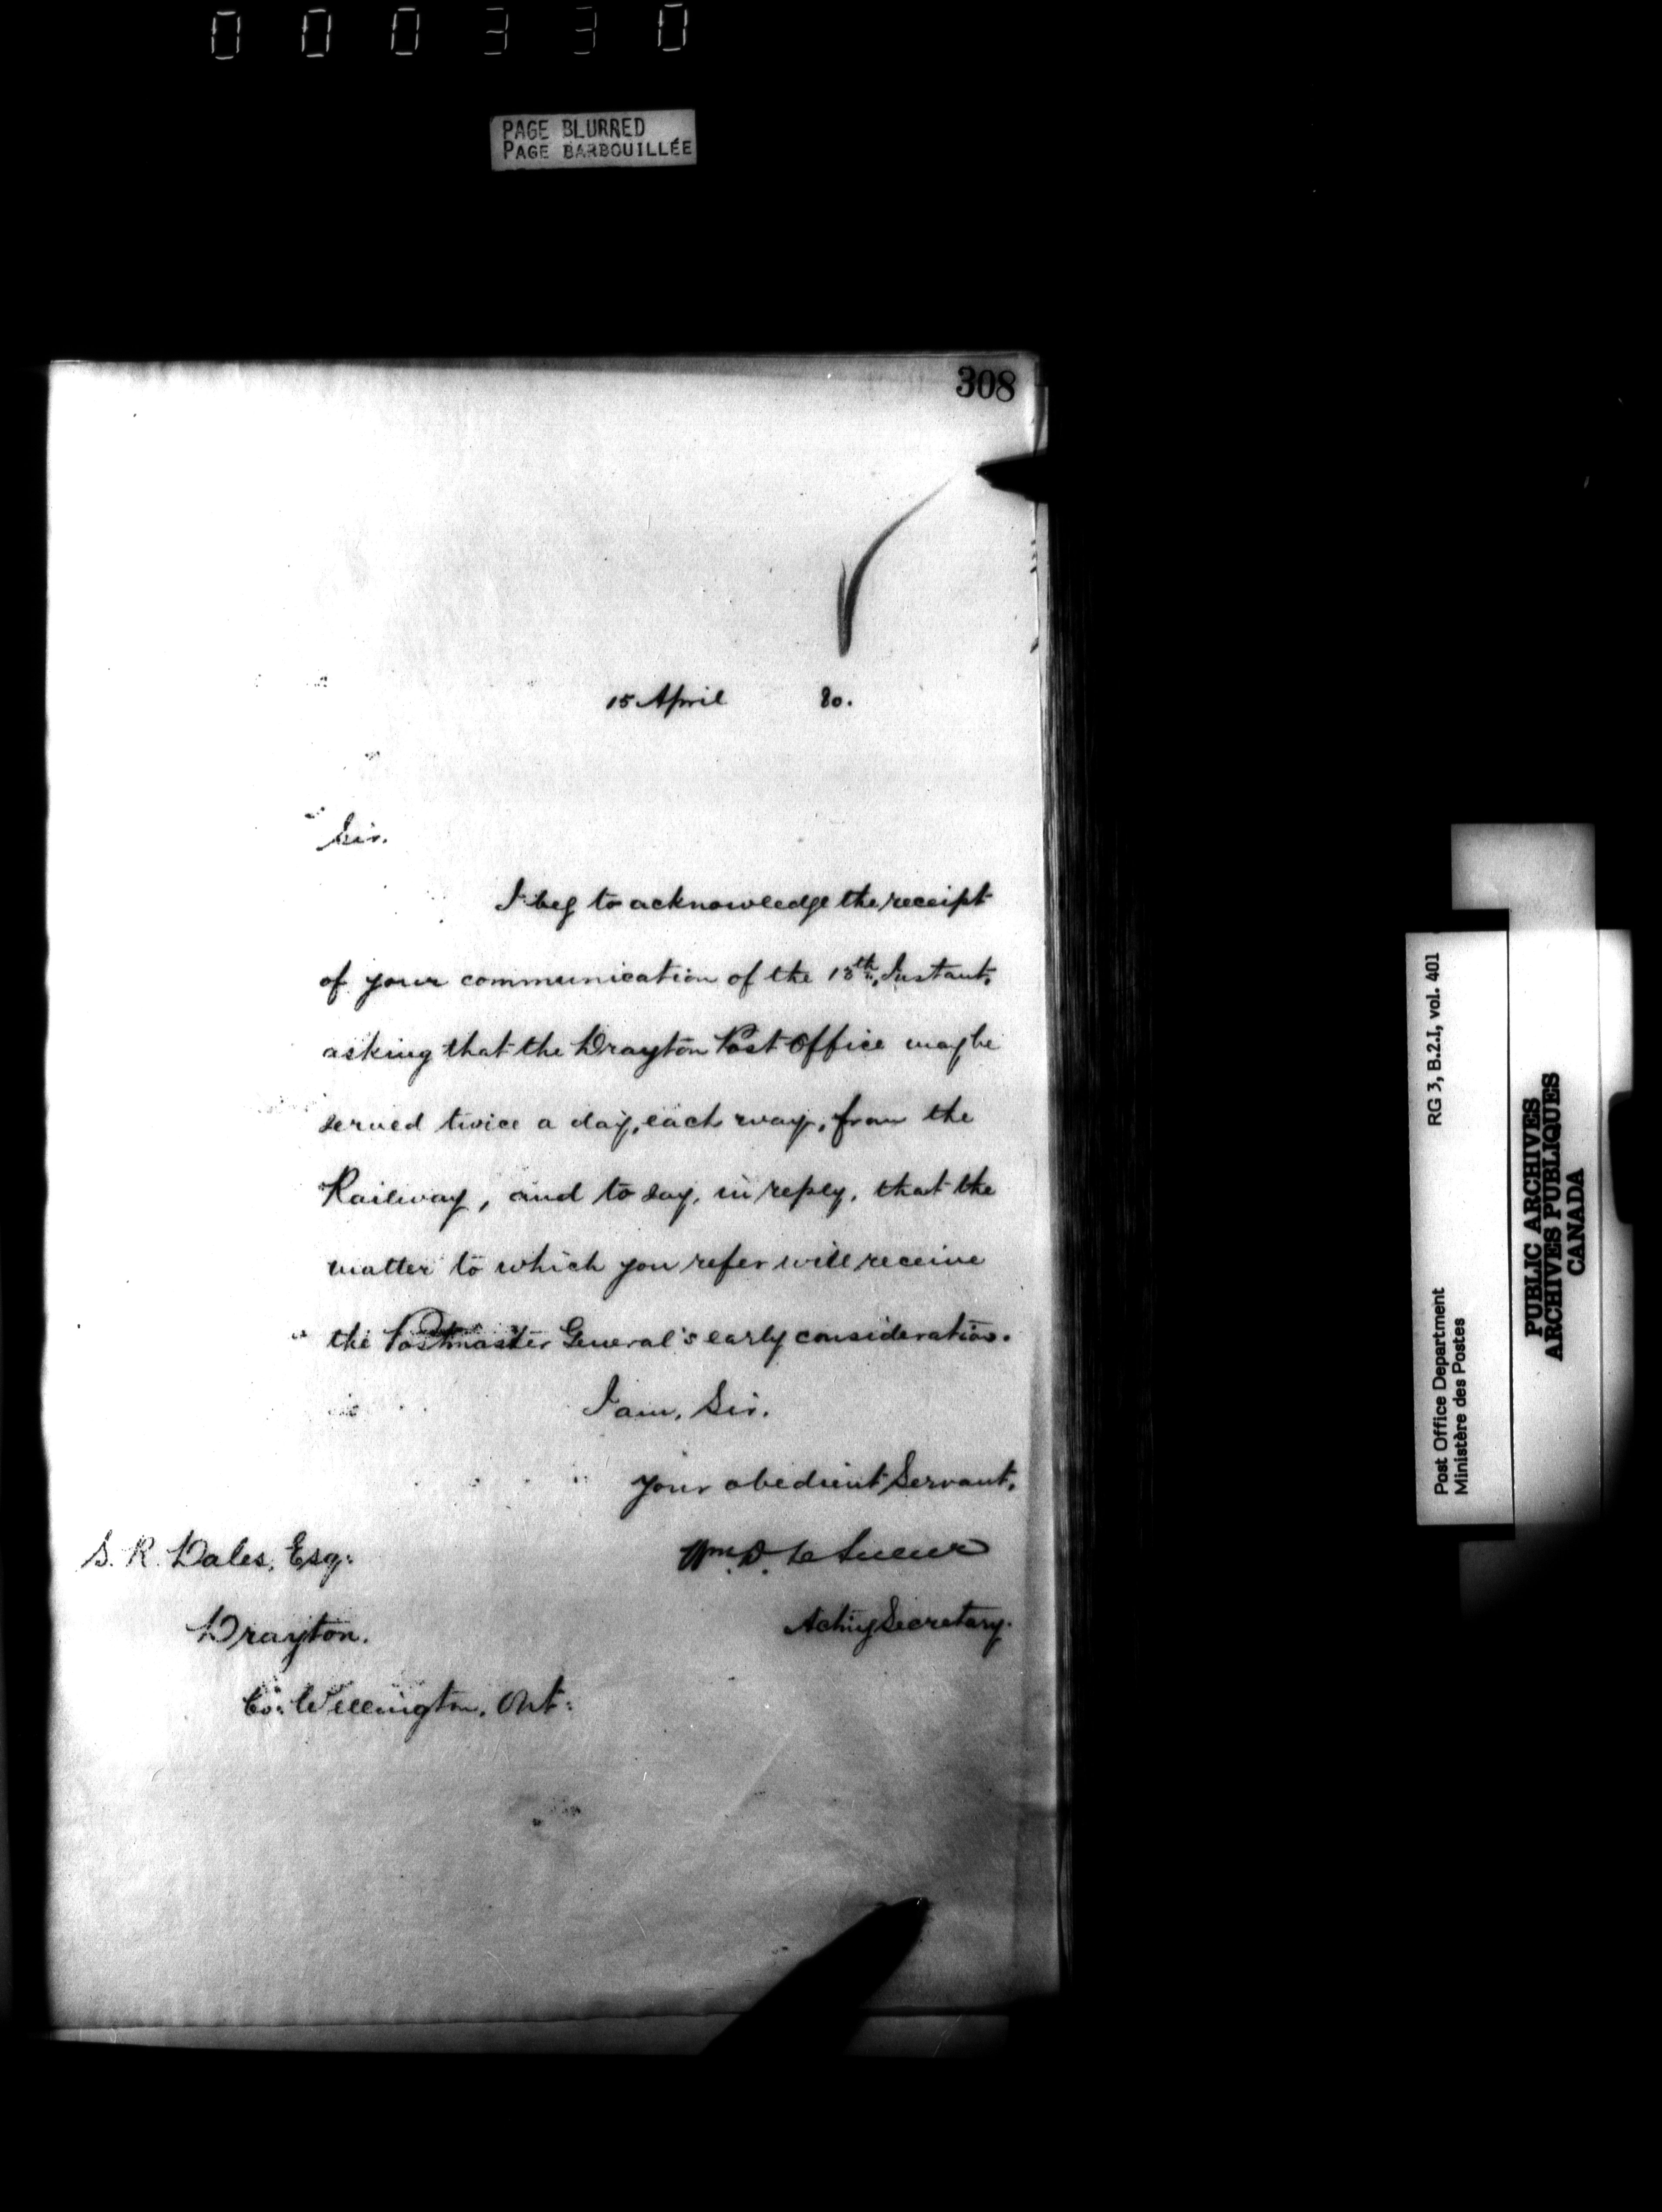 000330
PAGE BLURRED
PAGE BARBOUILLÉE
308
15 April 80.
Sir.
I beg to acknowledge the receipt
of your communication of the 13th. Instant,
asking that the Drayton Post Office may be
served twice a day, each way, from the
Railway, and to say, in reply, that the
matter to which you refer will receive
the Postmaster General's early consideration.
I am, Sir.
Your obedient Servant,
Wm. D. Le Sueur
Acting Secretary.
S. R. Dales, Esq:
Drayton.
Co: Wellington. Ont:
RG 3, B.2.I, vol. 401
Post Office Department
Ministère des Postes
PUBLIC ARCHIVES
ARCHIVES PUBLIQUES
CANADA